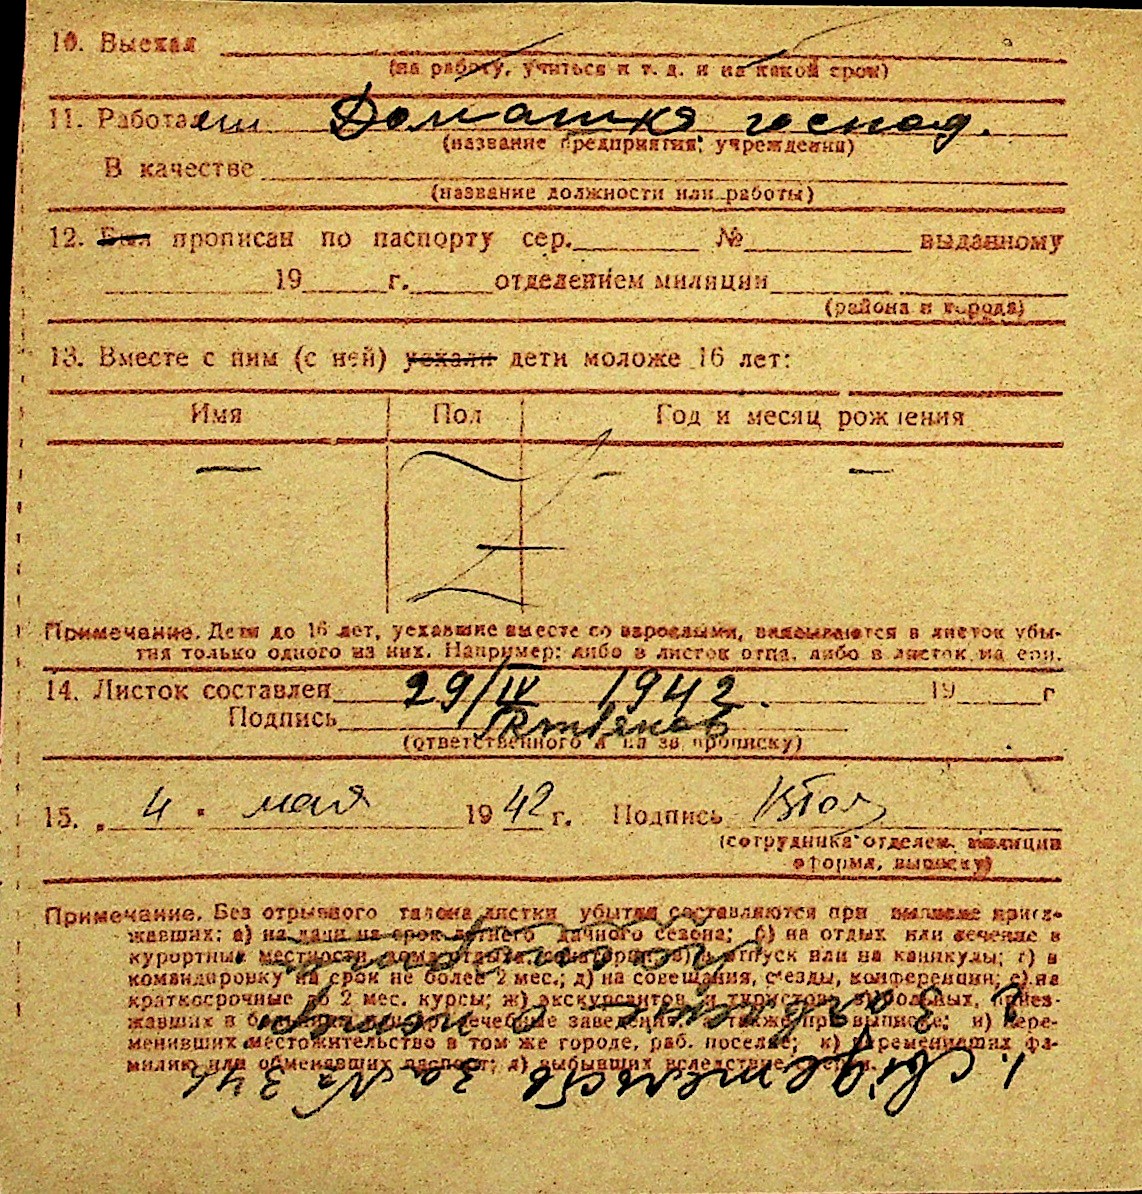 10. Выехал
(на работу, учиться и т. д. и на какой срок)
11. Работа Домашня господ.
(название предприятия, учреждения)
В качестве
(название должности или работы)
12. Был прописан по паспорту сер. № выданному
19 г. отделением милиции
(района и города)
13. Вместе с ним (с ней) уехали дети моложе 16 лет:
Имя Пол Год и месяц рождения
— — —
Примечание. Дети до 16 лет, уехавшие вместе со взрослыми, вписываются в листок убы-
тия только одного из них. Например: либо в листок отца, либо в листок матери.
14. Листок составлен 29/IV 1942. 19 г
Подпись
(ответственного за прописку)
15. „4" мая 1942 г. Подпись
(сотрудника отделен. милиции
оформ. выписку)
Примечание. Без отрывного талона листки убытия составляются при выписке приез-
жавших: а) на дачи на срок летнего дачного сезона; б) на отдых или лечение в
курортные местности, дома отдыха, санатории; в) в отпуск или на каникулы; г) в
командировку на срок не более 2 мес.; д) на совещания, съезды, конференции; е) на
краткосрочные до 2 мес. курсы; ж) экскурсантов и туристов; з) больных, приез-
жавших в больницы и др. лечебные заведения, а также при выписке; и) пере-
менивших местожительство в том же городе, раб. поселке; к) переменивших фа-
милию или обменявших паспорт; л) выбывших вследствие смерти.
1. свідетельство за № 346
2.